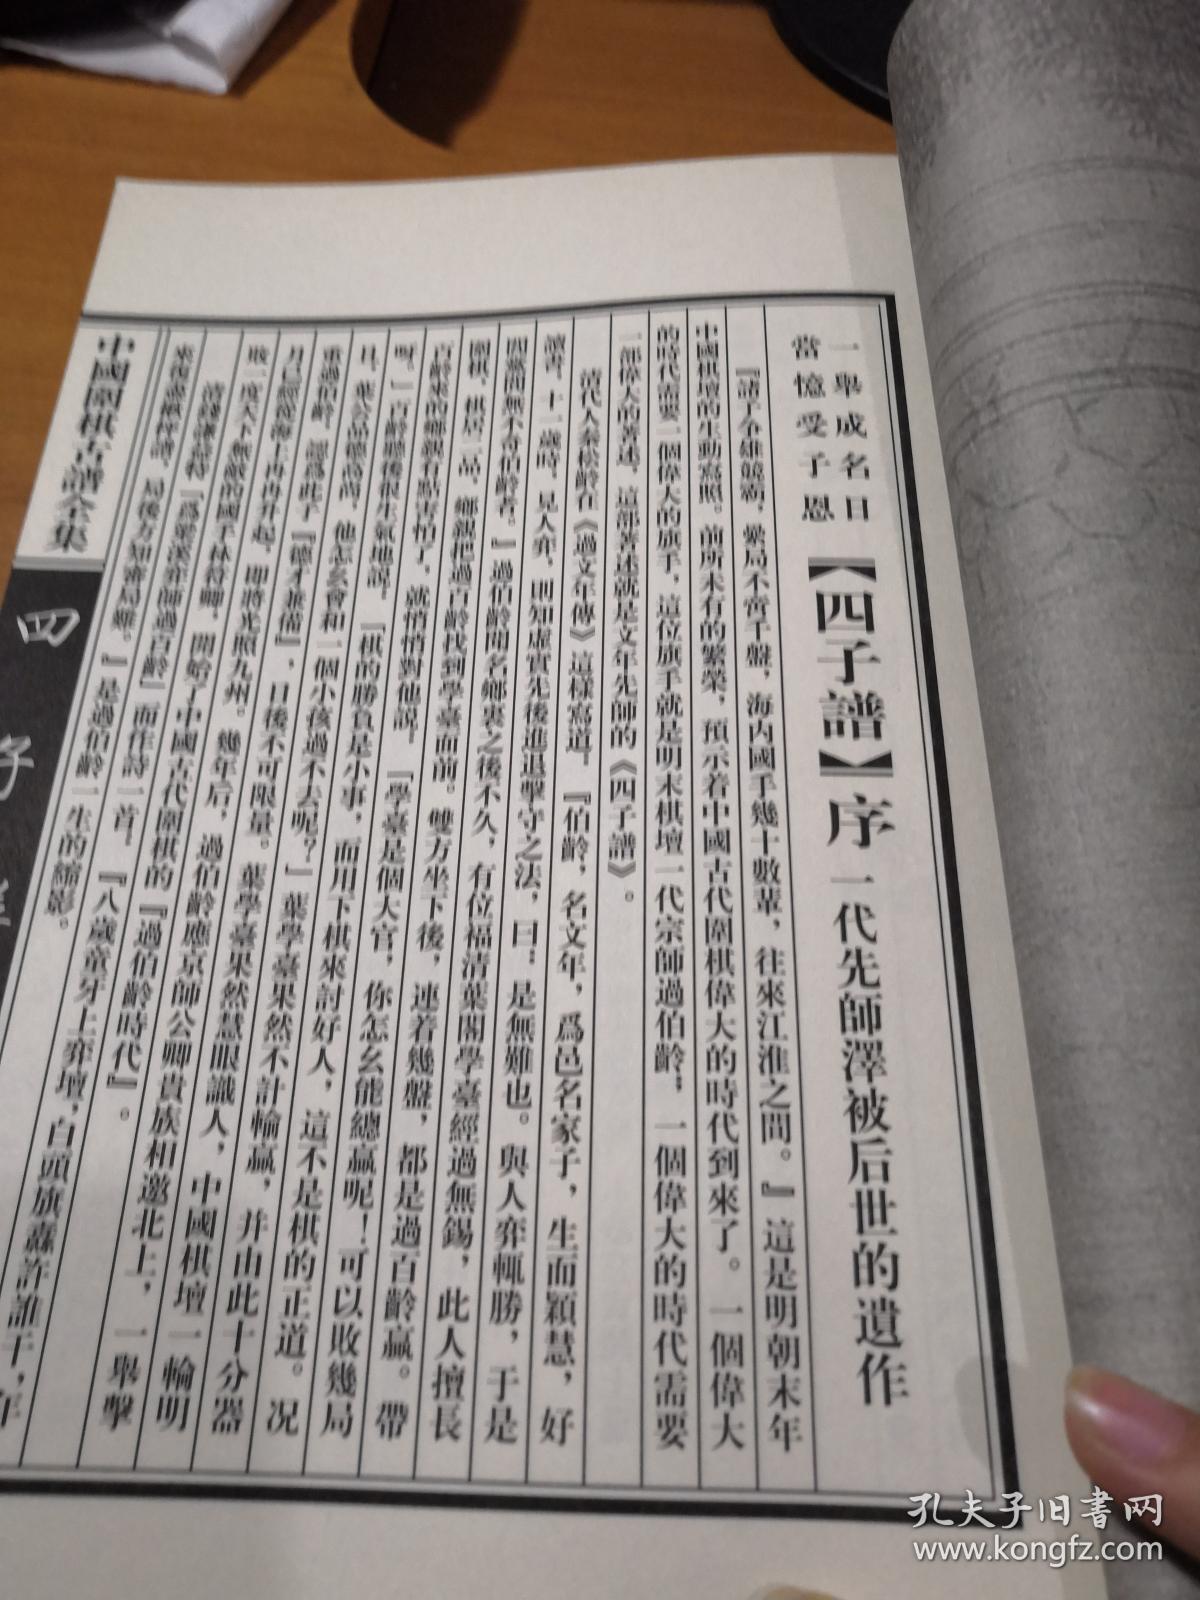 一舉成名日
當憶受子恩
《四子譜》序一代先師澤被后世的遺作
『諸子爭雄競霸，梁局不啻千盤，海内國手幾十數輩，往來江淮之間。』這是明朝末年
中國棋壇的生動寫照。前所未有的繁榮，預示着中國古代圍棋偉大的時代到來了。一個偉大
的時代需要一個偉大的旗手，這位旗手就是明末棋壇一代宗師過伯齡；一個偉大的時代需要
一部偉大的著述，這部著述就是文年先師的《四子譜》。
清代人秦松齡在《過文年傳》這樣寫道：『伯齡，名文年，爲邑名家子，生而穎慧，好
讀書，十一歲時，見人弈，則知虛實先後進退擊守之法，曰：是無難也。與人弈輒勝，于是
閭黨間無不奇伯齡者。』過伯齡聞名鄉裏之後不久，有位福清葉閣學臺經過無錫，此人擅長
圍棋，棋居二品，鄉親把過百齡找到學臺面前。雙方坐下後，連着幾盤，都是過百齡贏。帶
百齡來的鄉親有點害怕了，就悄悄對他說：「學臺是個大官，你怎么能總贏呢！可以敗幾局
呀。」百齡聽後很生氣地說：「棋的勝負是小事，而用下棋來討好人，這不是棋的正道。况
且，葉公品德高尚，他怎么會和一個小孩過不去呢？」葉學臺果然不計輸贏，并由此十分器
重過伯齡，認爲此子『德才兼備』，日後不可限量。葉學臺果然慧眼識人，中國棋壇一輪明
月已經從海上冉冉升起，即將光照九州。幾年后，過伯齡應京師公卿貴族相邀北上，一舉擊
敗一度天下無敵的國手林符卿，開始了中國古代圍棋的『過伯齡時代』。
清錢謙益特「爲梁溪弈師過百齡」而作詩一首：『八歲童牙上弈壇，白頭旗纛許誰干，年
來復盡狐枰譜，局後方知審局難。』是過伯齡一生的縮影。
中國圍棋古譜全集
四子譜
孔夫子旧书网
www.kongfz.com